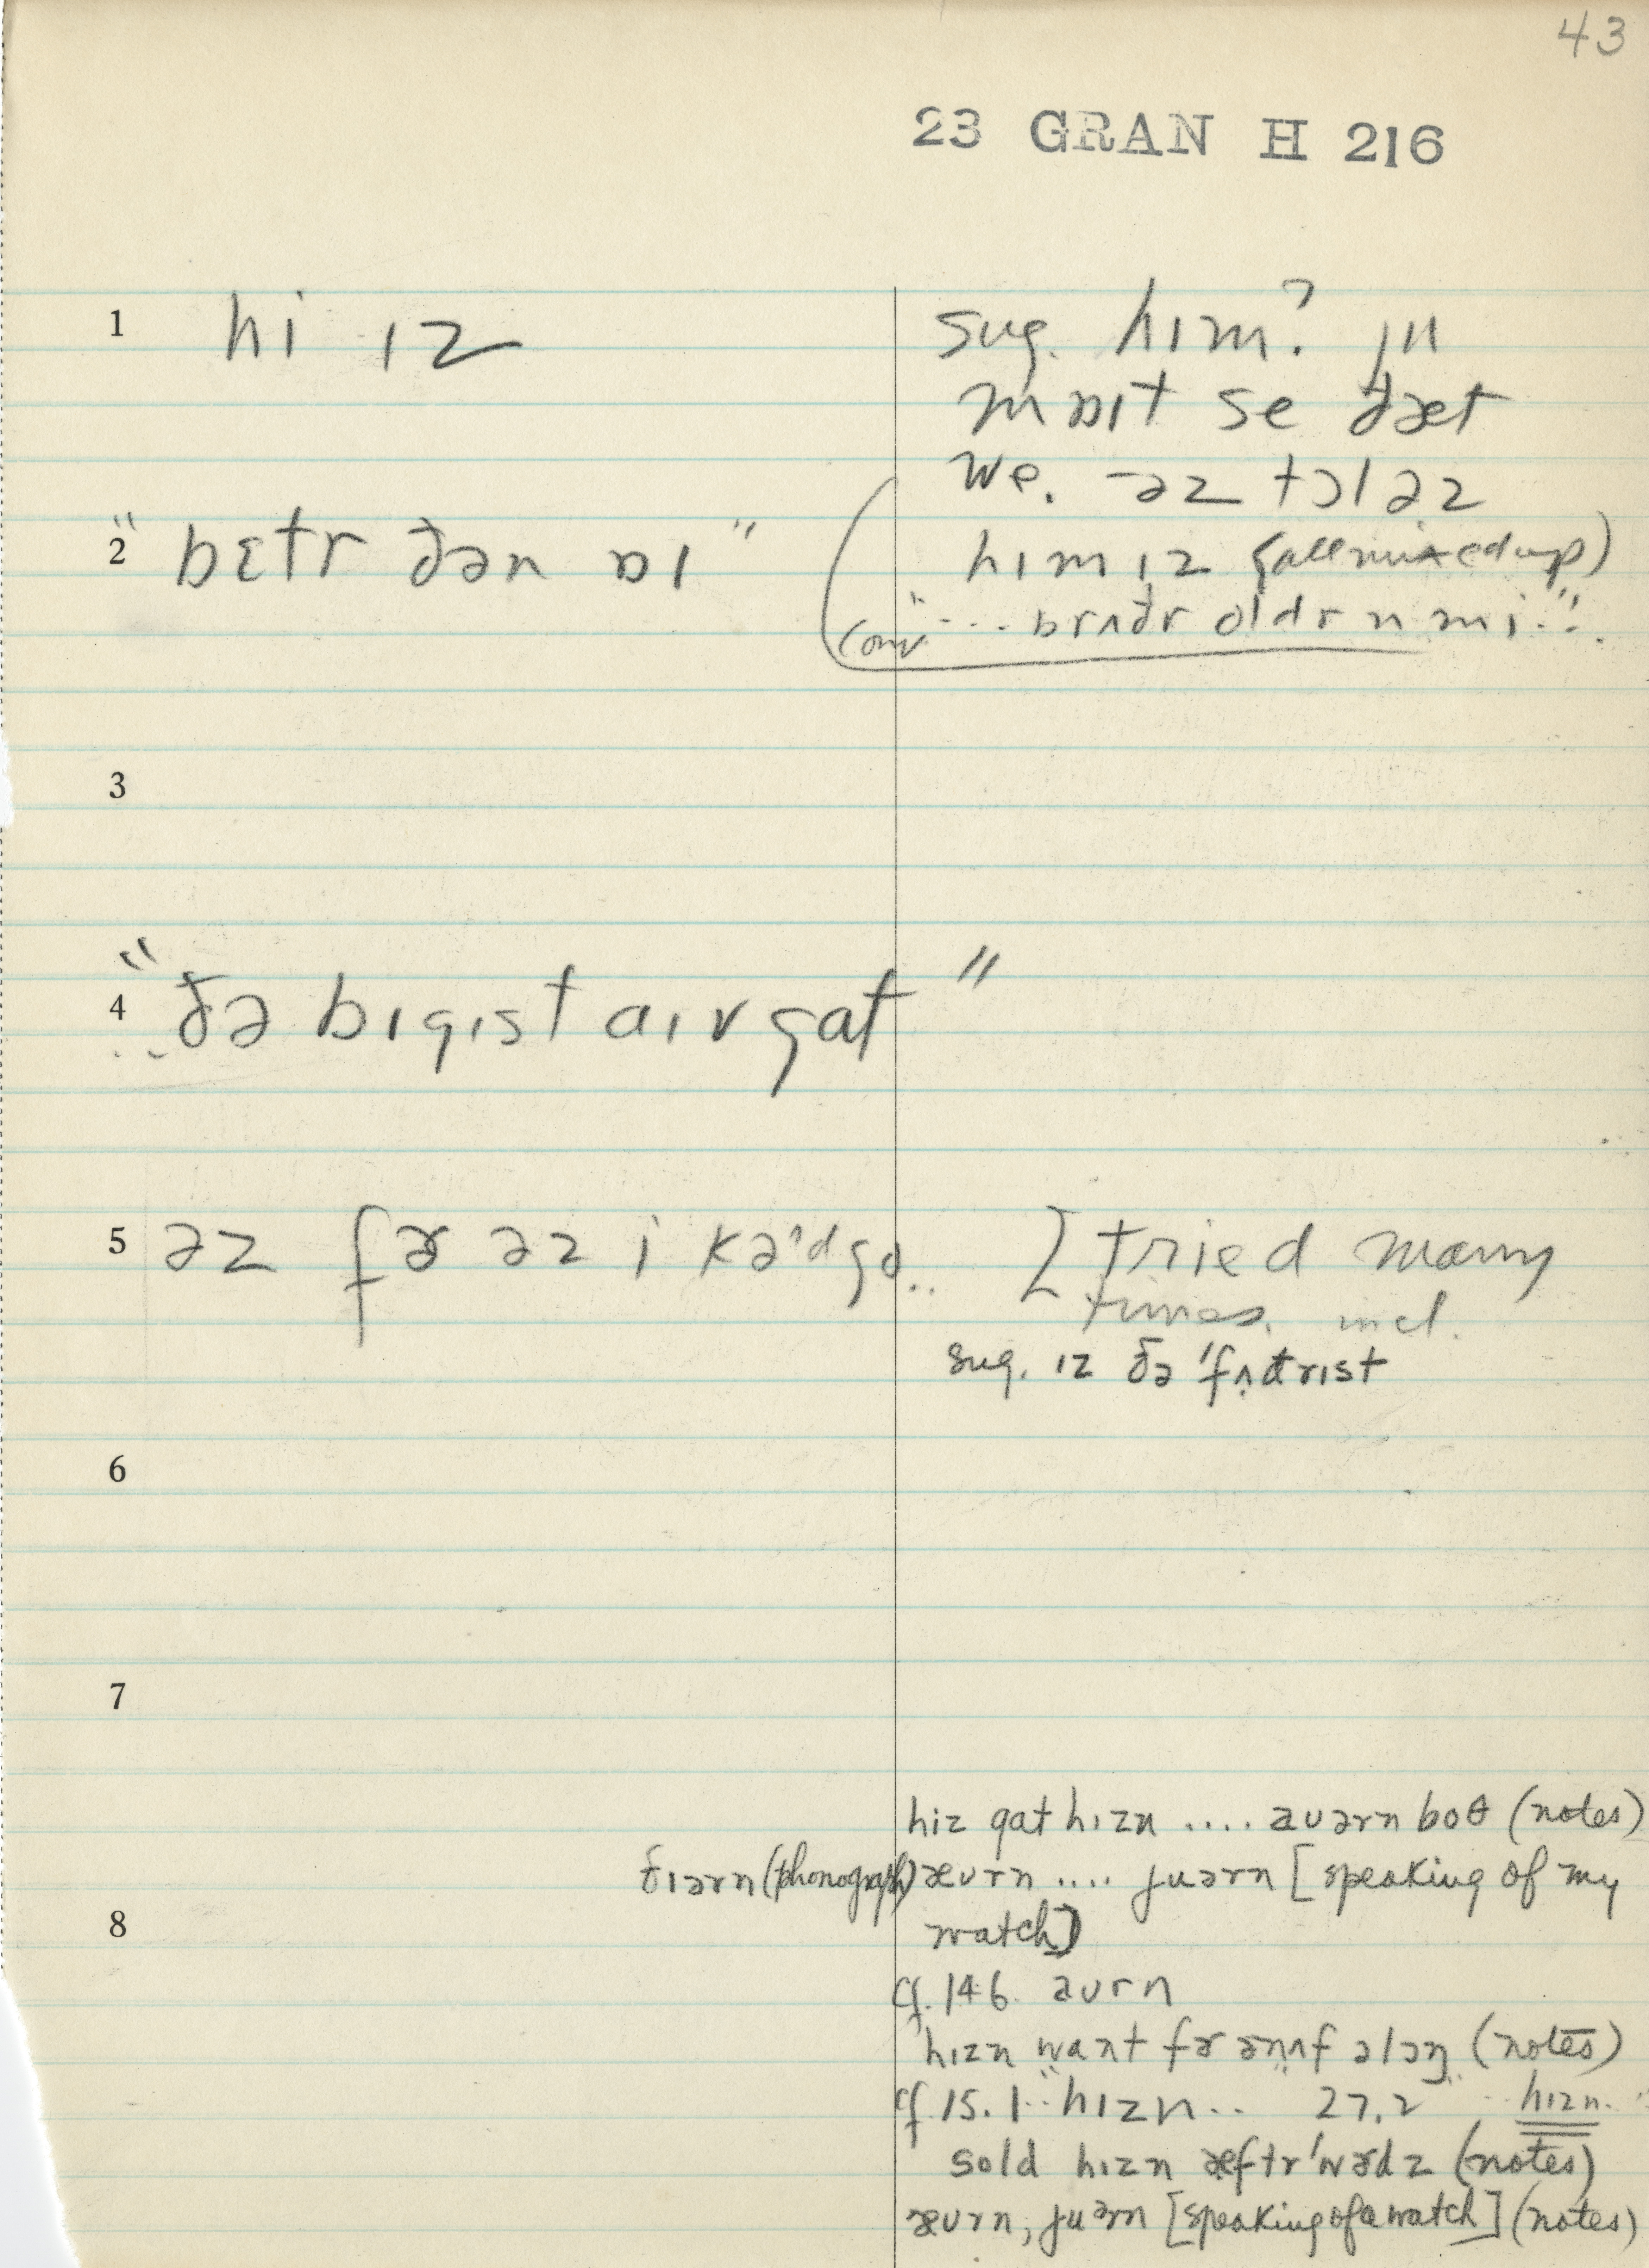 43
23 GRAN H 216
1 hi ɪz
sug. hɪm? ju
mɒɪt se ðæt
we. -əz tɔləz
2 "bɛtr ðən ɒɪ"
hɪm ɪz (all mixed up)
conv "... brʌðr oldr n mi..."
3
4 "ðə bɪgɪst aɪv gat"
5 əz fɚ əz i kə'd go..
[tried many
times, incl.
sug. ɪz ðə 'fʌðrɪst
6
7
hiz gat hɪzn .... aʊərn boθ (notes)
ðɪərn (phonograph) æʊrn .... juərn [speaking of my
watch]
8
cf. 146. aʊrn
hɪzn want fɚ ənʌf əlɔŋ (notes)
cf. 15.1 "hɪzn.." 27.2 " hɪzn. "
sold hɪzn æftr'wɚdz (notes)
æʊrn, juərn [speaking of a watch] (notes)